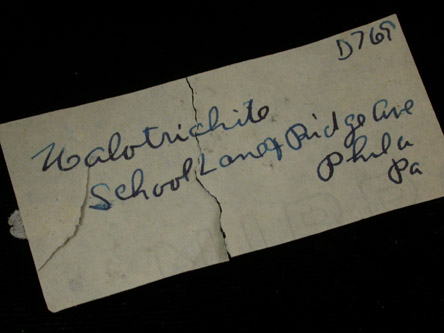 D769
Halotrichite
School Lane & Ridge Ave
Phila
Pa